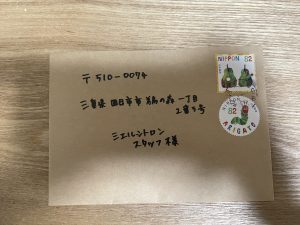 〒510-0074
三重県 四日市市 鵜の森 一丁目
2番5号
シエルシトロン
スタッフ 様
NIPPON 82
82
NIPPON
ARIGATO